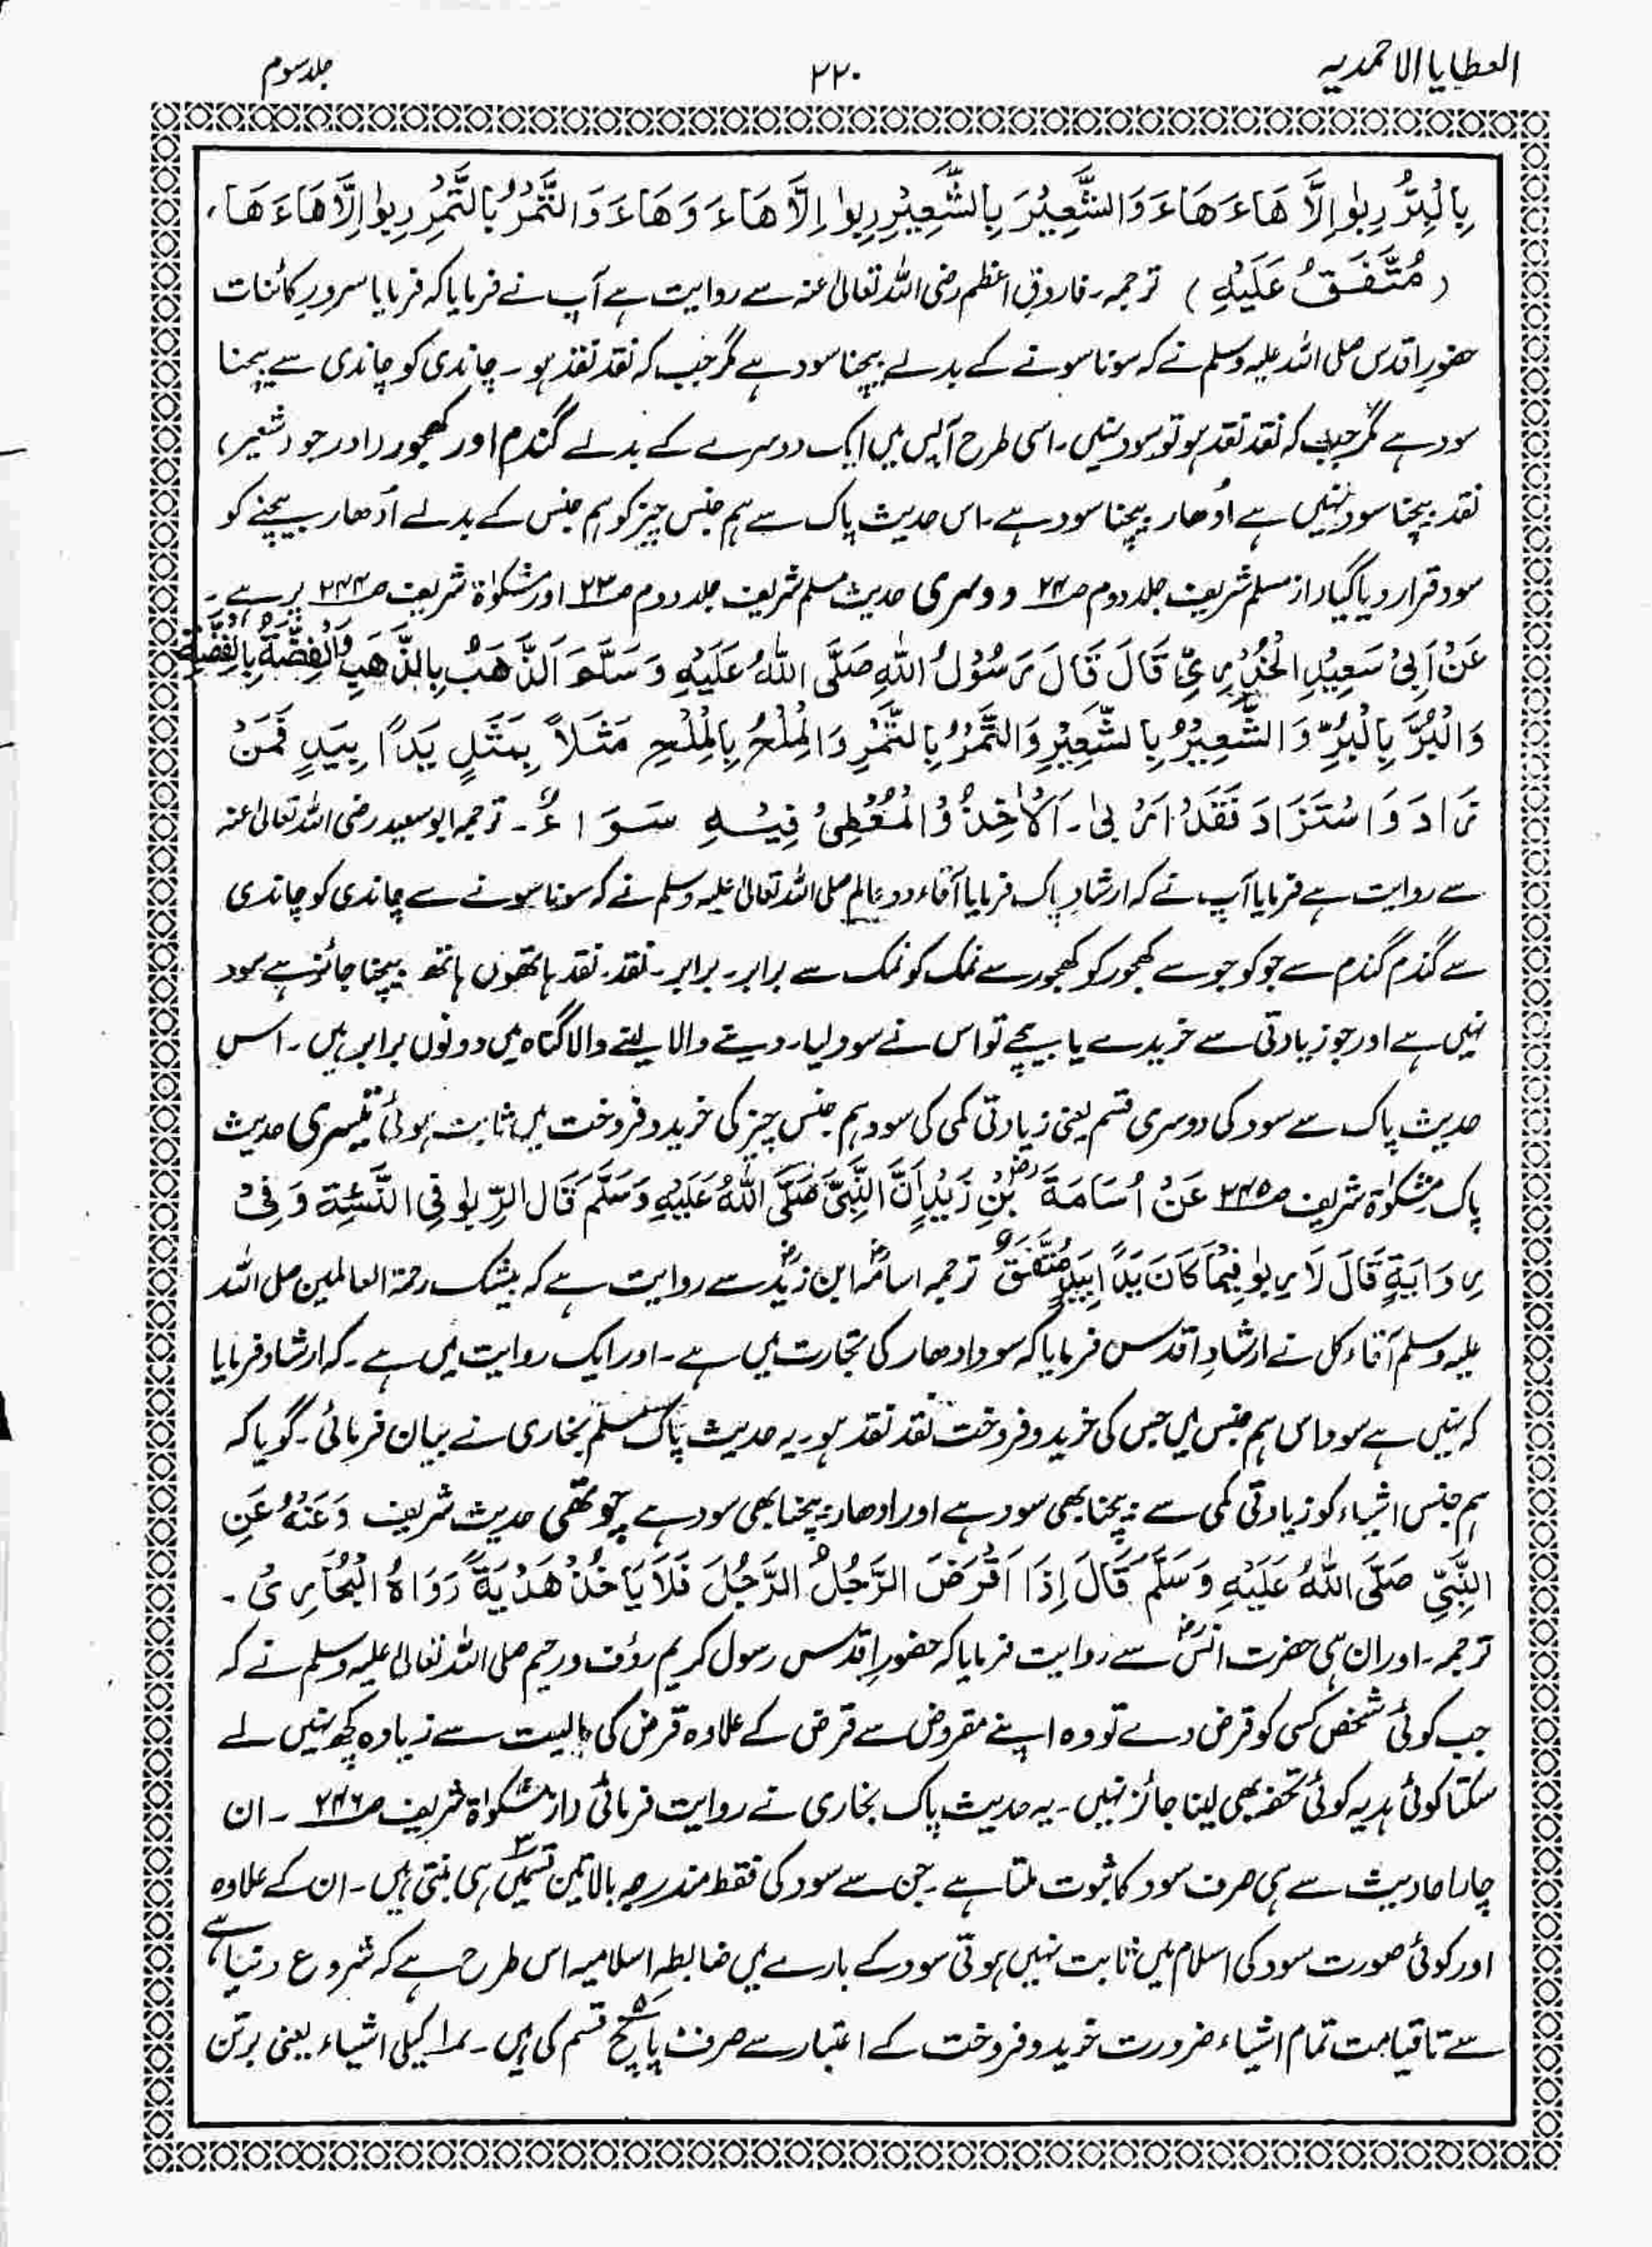 العطایا الاحمدیہ
۲۲۰
جلد سوم
بِالْبُرِّ رِبٰوا اِلَّا هَاءَ هَاءَ وَالشَّعِیْرَ بِالشَّعِیْرِ رِبٰوا اِلَّا هَاءَ وَ هَاءَ وَالتَّمْرُ بِالتَّمْرِ رِبٰوا اِلَّا هَاءَ هَاءَ
(مُتَّفَقٌ عَلَیْہِ) ترجمہ۔ فاروقِ اعظم رضی اللہ تعالیٰ عنہ سے روایت ہے آپ نے فرمایا کہ فرمایا سرورِ کائنات
حضورِ اقدس صلی اللہ علیہ وسلم نے کہ سونا سونے کے بدلے بیچنا سود ہے مگر جب کہ نقد نقد ہو۔ چاندی کو چاندی سے بیچنا
سود ہے مگر جب کہ نقد نقد ہو تو سود نہیں۔ اسی طرح آپس میں ایک دوسرے کے بدلے گندم اور کھجور (اور جو (شعیر)
نقد بیچنا سود نہیں ہے اُدھار بیچنا سود ہے۔ اس حدیث پاک سے ہم جنس چیز کو ہم جنس کے بدلے اُدھار بیچنے کو
سود قرار دیا گیا (از مسلم شریف جلد دوم صـ۲۴ دوسری حدیث مسلم شریف جلد دوم صـ۲۳ اور مشکوٰۃ شریف صـ۲۴۴ پر ہے۔
عَنْ اَبِیْ سَعِیْدِ الْخُدْرِیِّ قَالَ قَالَ رَسُوْلُ اللهِ صَلَّی اللهُ عَلَیْہِ وَسَلَّمَ اَلذَّهَبُ بِالذَّهَبِ وَالْفِضَّةُ بِالْفِضَّةِ
وَالْبُرُّ بِالْبُرِّ وَالشَّعِیْرُ بِالشَّعِیْرِ وَالتَّمْرُ بِالتَّمْرِ وَالْمِلْحُ بِالْمِلْحِ مَثَلاً بِمَثَلٍ یَدًا بِیَدٍ فَمَنْ
زَادَ وَاسْتَزَادَ فَقَدْ اَرْبیٰ۔ اَلْاٰخِذُ وَالْمُعْطِیْ فِیْہِ سَوَاءٌ۔ ترجمہ ابو سعید رضی اللہ تعالیٰ عنہ
سے روایت ہے فرمایا آپ نے کہ ارشادِ پاک فرمایا آقاء دو عالم صلی اللہ تعالیٰ علیہ وسلم نے کہ سونا سونے سے چاندی کو چاندی
سے گندم گندم سے جو کو جو سے کھجور کو کھجور سے نمک کو نمک سے برابر۔ برابر۔ نقد۔ نقد ہاتھوں ہاتھ بیچنا جائز ہے سود
نہیں ہے اور جو زیادتی سے خریدے یا بیچے تو اس نے سود لیا۔ دینے والا لینے والا گناہ میں دونوں برابر ہیں۔ اس
حدیث پاک سے سود کی دوسری قسم یعنی زیادتی کمی کی سود ہم جنس چیز کی خرید و فروخت میں ثابت ہوئی تیسری حدیث
پاک مشکوٰۃ شریف صـ۲۴۵ عَنْ اُسَامَةَ بْنِ زَیْدٍ اَنَّ النَّبِیَّ صَلَّی اللهُ عَلَیْہِ وَسَلَّمَ قَالَ الرِّبٰوا فِی النَّسِئَةِ وَفِیْ
رِوَایَةٍ قَالَ لَا رِبٰوا فِیْمَا كَانَ یَدًا بِیَدٍ مُتَّفَقٌ ترجمہ اسامہؓ ابن زیدؓ سے روایت ہے کہ بیشک رحمۃ العالمین صلی اللہ
علیہ وسلم آقاء کل نے ارشادِ اقدس فرمایا کہ سود ادھار کی تجارت میں ہے۔ اور ایک روایت میں ہے۔ کہ ارشاد فرمایا
کہ نہیں ہے سود اس ہم جنس میں جس کی خرید و فروخت نقد نقد ہو۔ یہ حدیث پاک مسلم بخاری نے بیان فرمائی۔ گویا کہ
ہم جنس اشیاء کو زیادتی کمی سے بیچنا بھی سود ہے اور ادھار بیچنا بھی سود ہے چوتھی حدیث شریف وَعَنْہُ عَنِ
النَّبِیِّ صَلَّی اللهُ عَلَیْہِ وَسَلَّمَ قَالَ اِذَا اَقْرَضَ الرَّجُلُ الرَّجُلَ فَلَا یَاخُذْ هَدْیَةً رَوَاهُ الْبُخَارِیُ۔
ترجمہ۔ اور ان ہی حضرت انسؓ سے روایت فرمایا کہ حضورِ اقدس رسول کریم رؤف و رحیم صلی اللہ تعالیٰ علیہ وسلم نے کہ
جب کوئی شخص کسی کو قرض دے تو وہ اپنے مقروض سے قرض کے علاوہ قرض کی مالیت سے زیادہ کچھ نہیں لے
سکتا کوئی ہدیہ کوئی تحفہ بھی لینا جائز نہیں۔ یہ حدیث پاک بخاری نے روایت فرمائی (از مشکوٰۃ شریف صـ۲۴۶ ۔ ان
چار احادیث سے ہی صرف سود کا ثبوت ملتا ہے۔ جن سے سود کی فقط مندرجہ بالا تین ۳ قسمیں ہی بنتی ہیں۔ ان کے علاوہ
اور کوئی صورت سود کی اسلام میں ثابت نہیں ہوتی سود کے بارے میں ضابطہ اسلامیہ اس طرح ہے کہ شروع دنیا سے
سے تا قیامت تمام اشیاء ضرورت خرید و فروخت کے اعتبار سے صرف پانچ ۵ قسم کی ہیں۔ ۱؎ اکیلی اشیاء یعنی برتن